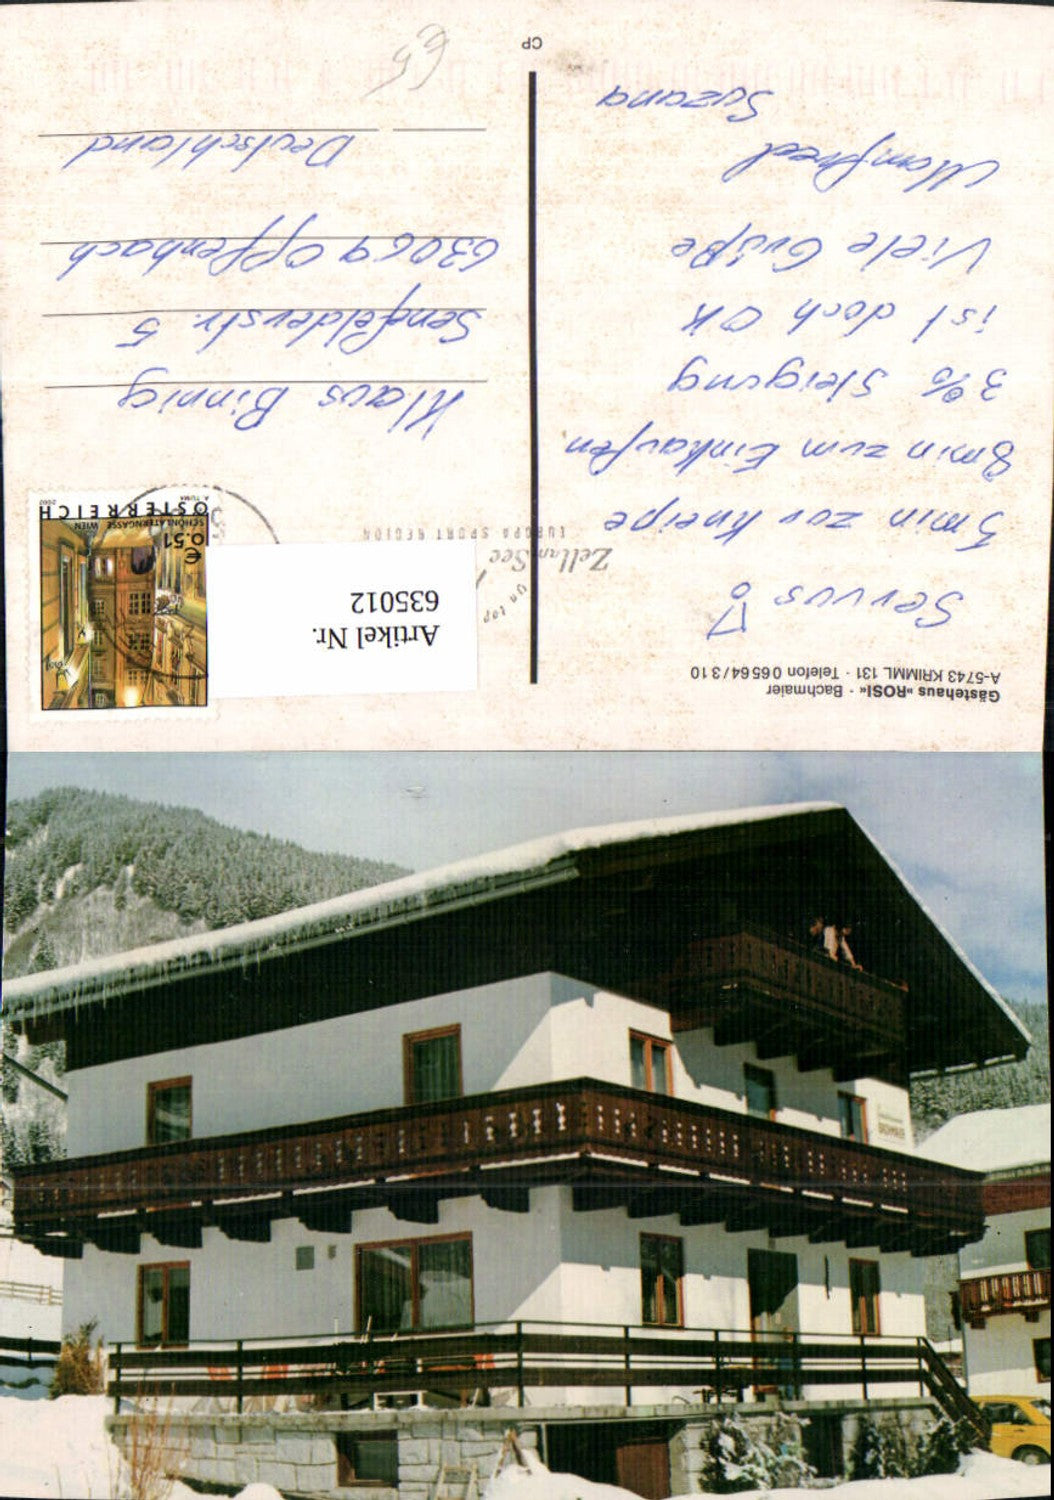 Gästehaus »ROSI« · Bachmaier
A-5743 KRIMML 131 · Telefon 0 65 64 / 3 10
Servus
5 min zur Kneipe
8 min zum Einkaufen
3% Steigung
ist doch OK
Viele Grüße
Manfred
Suzana
CP
Artikel Nr.
635012
Zell am See
EUROPA SPORT REGION
€
0.51
SCHÖNLATERNGASSE WIEN
ÖSTERREICH
A. TUMA
2002
Klaus Binnig
Senefelderstr. 5
63069 Offenbach
Deutschland
€5